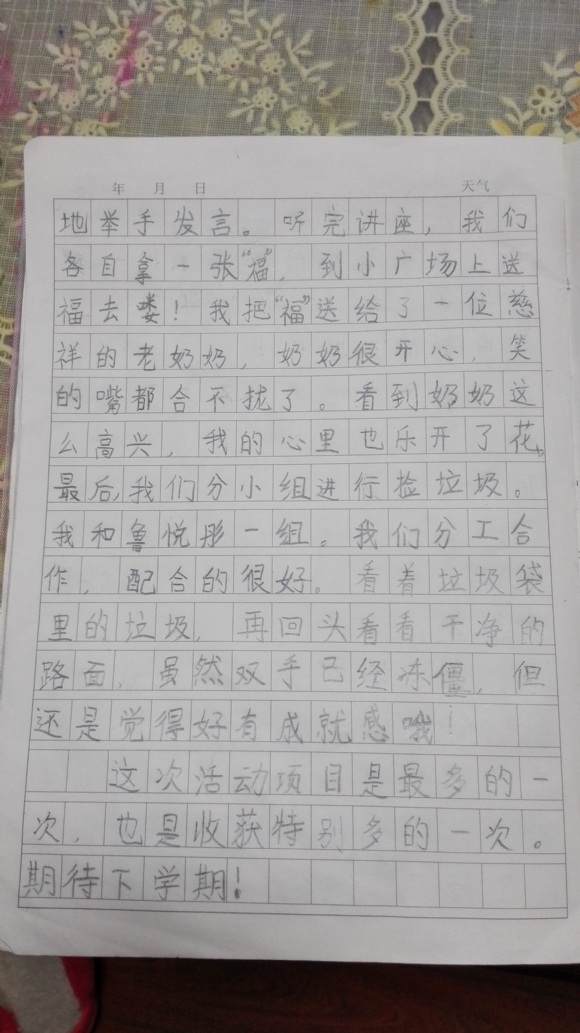 年 月 日 天气
地举手发言。听完讲座，我们
各自拿一张“福”，到小广场上送
福去喽！我把“福”送给了一位慈
祥的老奶奶，奶奶很开心，笑
的嘴都合不拢了。看到奶奶这
么高兴，我的心里也乐开了花。
最后，我们分小组进行捡垃圾。
我和鲁悦彤一组。我们分工合
作，配合的很好。看着垃圾袋
里的垃圾，再回头看看干净的
路面，虽然双手已经冻僵，但
还是觉得好有成就感哦！
这次活动项目是最多的一
次，也是收获特别多的一次。
期待下学期！